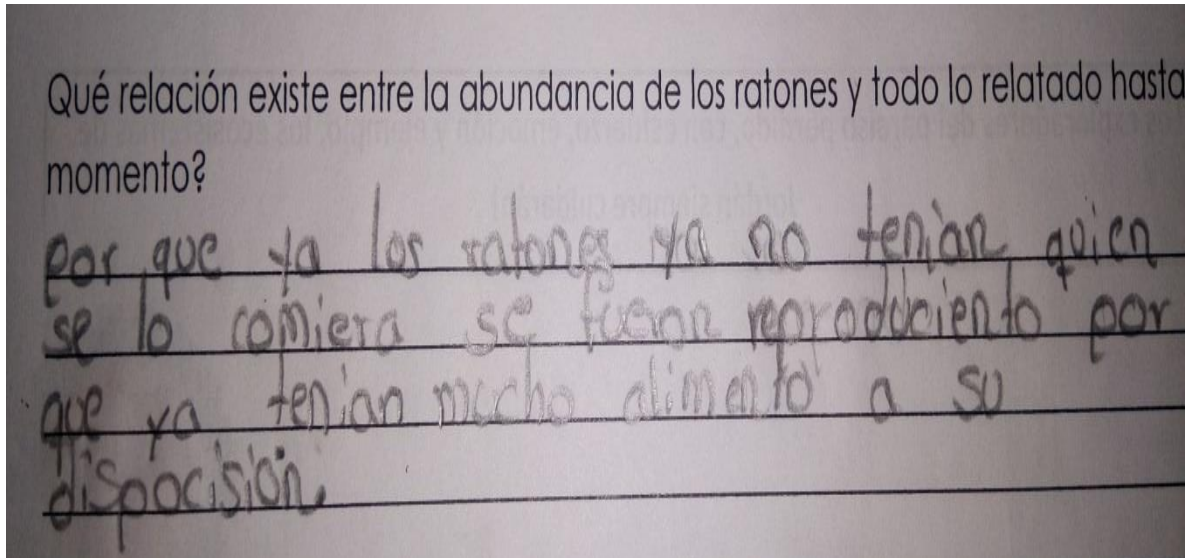 Qué relación existe entre la abundancia de los ratones y todo lo relatado hasta
momento?
por que ya los ratones ya no tenian quien
se lo comiera se fueron reproduciento por
que ya tenian mucho alimento a su
dispocision.